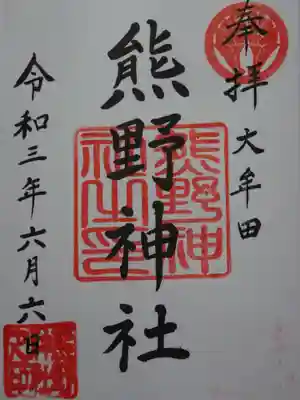 奉拝
大牟田
熊野神社
熊野神
社之印
令和三年六月六日